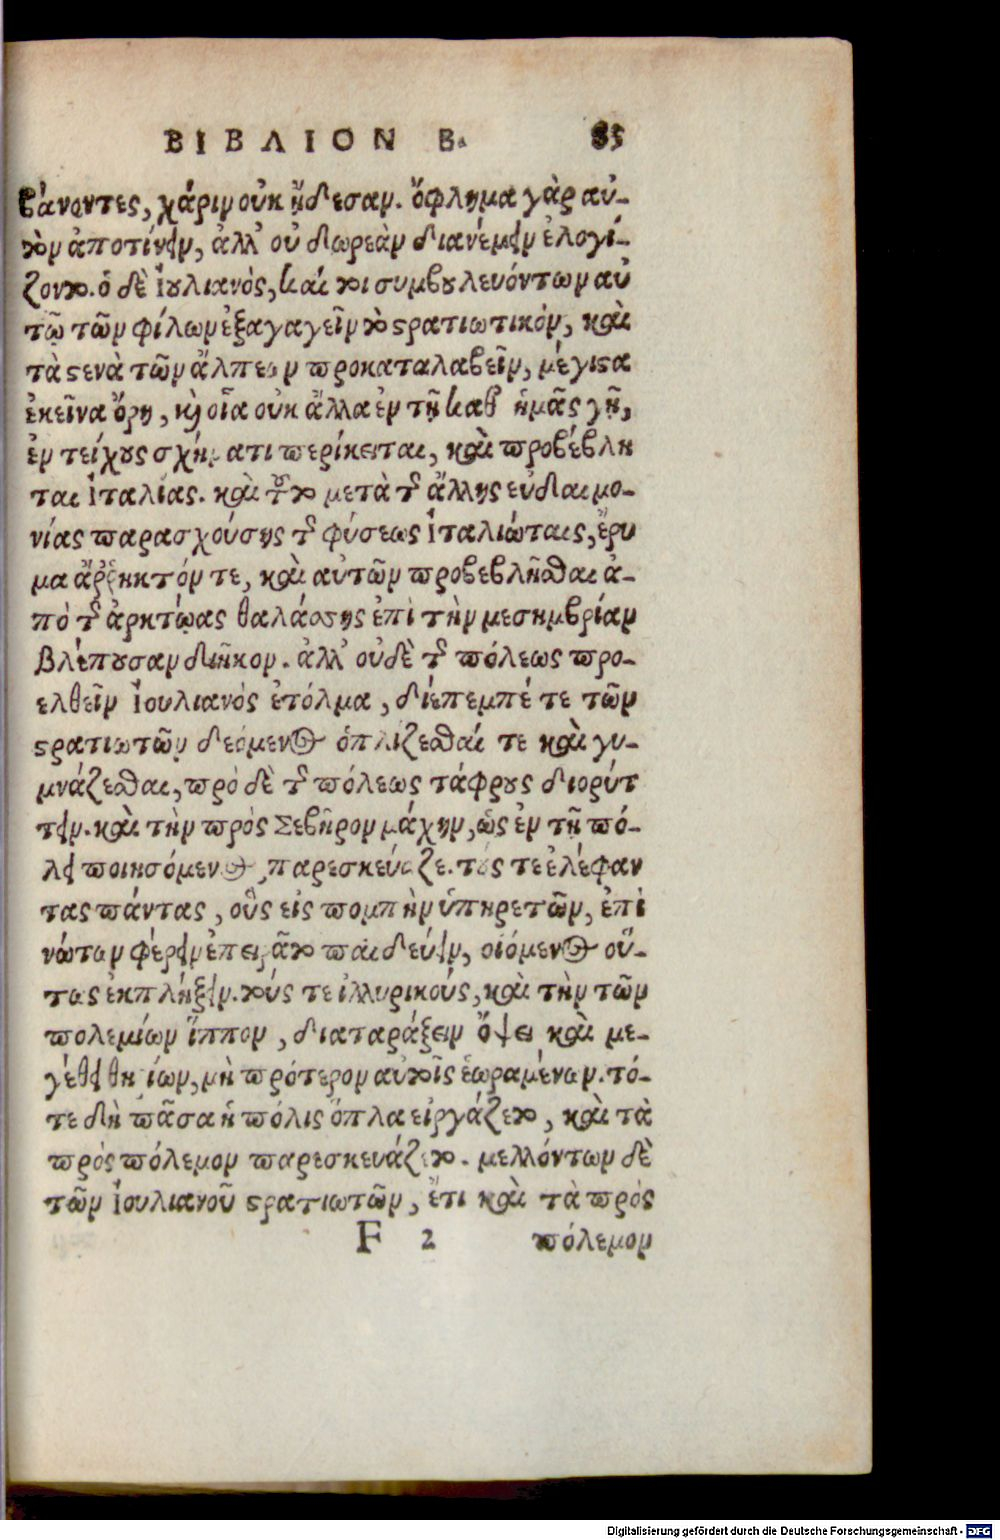 ΒΙΒΛΙΟΝ Β. 85
βάνοντες, χάριν οὐκ ᾔδεσαν. ὄφλημα γὰρ αὐ-
τὸν ἀποτίνειν, ἀλλ' οὐ δωρεὰν διανέμειν ἐλογί-
ζοντο. ὁ δὲ ἰουλιανὸς, καί τοι συμβουλευόντων αὐ
τῷ τῶν φίλων ἐξαγαγεῖν τὸ στρατιωτικόν, καὶ
τὰ στενὰ τῶν ἄλπεων προκαταλαβεῖν, μέγιστα
ἐκεῖνα ὄρη, καὶ οἷα οὐκ ἄλλα ἐν τῇ καθ' ἡμᾶς γῇ,
ἐν τείχους σχήματι περίκειται, καὶ προβέβλη
ται ἰταλίας. καὶ τοῦτο μετὰ τῆς ἄλλης εὐδαιμο-
νίας παρασχούσης τῆς φύσεως ἰταλιώταις, ἔρυ
μα ἄῤῥηκτόν τε, καὶ αὐτῶν προβεβλῆσθαι ἀ-
πὸ τῆς ἀρκτῴας θαλάσσης ἐπὶ τὴν μεσημβρίαν
βλέπουσαν διῆκον. ἀλλ' οὐδὲ τῆς πόλεως προ-
ελθεῖν ἰουλιανὸς ἐτόλμα, διέπεμπέ τε τῶν
στρατιωτῶν δεόμενος ὁπλίζεσθαί τε καὶ γυ-
μνάζεσθαι, πρὸ δὲ τῆς πόλεως τάφρους διορύτ
τειν. καὶ τὴν πρὸς Σεβῆρον μάχην, ὡς ἐν τῇ πό-
λει ποιησόμενος παρεσκεύαζε. τούς τε ἐλέφαν
τας πάντας, οὓς εἰς πομπὴν ὑπηρετῶν, ἐπὶ
νώτων φέρειν ἐπειρᾶτο παιδεύειν, οἰόμενος οὕ-
τως ἐκπλήξειν. τούς τε ἰλλυρικούς, καὶ τὴν τῶν
πολεμίων ἵππον, διαταράξειν ὄψει καὶ με-
γέθει θηρίων, μὴ πρότερον αὐτοῖς ἑωραμένων. τό-
τε δὴ πᾶσα ἡ πόλις ὅπλα εἰργάζετο, καὶ τὰ
πρὸς πόλεμον παρεσκευάζετο. μελλόντων δὲ
τῶν ἰουλιανοῦ στρατιωτῶν, ἔτι καὶ τὰ πρὸς
F 2 πόλεμον
Digitalisierung gefördert durch die Deutsche Forschungsgemeinschaft - DFG